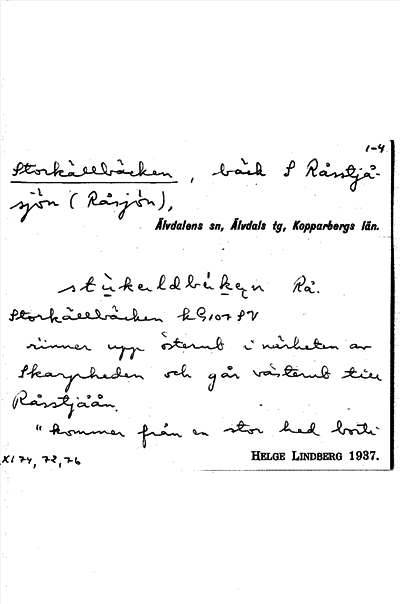 1-4
Storkällbäcken, bäck S Råsstjå-
sjön (Råsjön),
Älvdalens sn, Älvdals tg, Kopparbergs län.
Rå.
Storkällbäcken k G107 SV
rinner upp österut i närheten av
Skarpheden och går västerut till
Råsstjåån.
"kommer från en stor hed borti
XI 74, 72, 76
HELGE LINDBERG 1937.